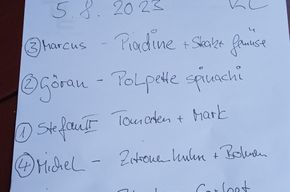 5. 8. 2023
③ Marcus - Piadine + Steak + Gemüse
② Göran - Polpette spinachi
① Stefan II Tomaten + Mark
④ Michel - Zitronenhuhn + Bohnen